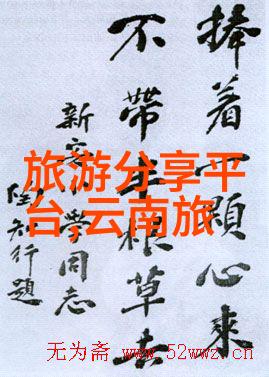 捧着一顆心來
不帶半根草去
新安小學同志
陶知行題
旅游分享平
台-云南旅
无为斋 www.52wwz.cn